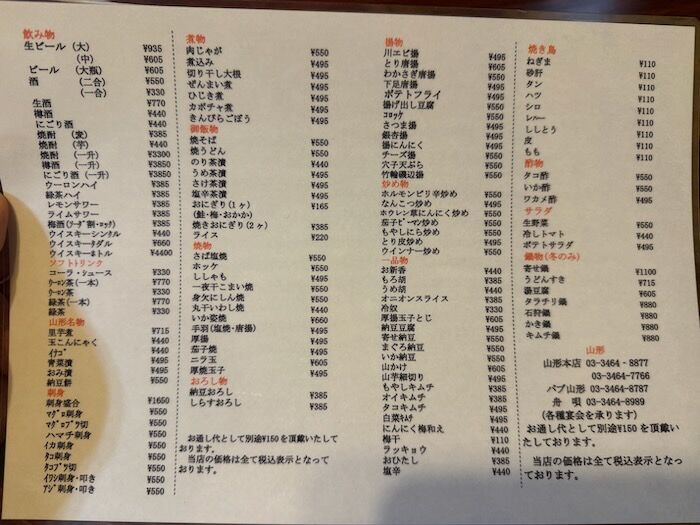 飲み物
生ビール (大) ¥935
(中) ¥605
ビール (大瓶) ¥605
酒 (二合) ¥550
(一合) ¥330
生酒 ¥770
樽酒 ¥440
にごり酒 ¥440
焼酎 (麦) ¥385
焼酎 (芋) ¥440
焼酎 (一升) ¥3300
樽酒 (一升) ¥3850
にごり酒 (一升) ¥3850
ウーロンハイ ¥385
緑茶ハイ ¥385
レモンサワー ¥385
ライムサワー ¥385
梅酒(ソーダ割・ロック) ¥385
ウイスキーシングル ¥440
ウイスキーダブル ¥660
ウイスキーボトル ¥4400
ソフトドリンク
コーラ・ジュース ¥330
ウーロン茶(一本) ¥770
ウーロン茶 ¥330
緑茶(一本) ¥770
緑茶 ¥330
山形名物
里芋煮 ¥715
玉こんにゃく ¥440
イナゴ ¥440
青菜漬 ¥495
おみ漬 ¥495
納豆餅 ¥550
刺身
刺身盛合 ¥1650
マグロ刺身 ¥550
マグロブツ切 ¥550
ハマチ刺身 ¥550
イカ刺身 ¥550
タコ刺身 ¥550
タコブツ切 ¥550
イワシ刺身・叩き ¥550
アジ刺身・叩き ¥550
煮物
肉じゃが ¥550
煮込み ¥495
切り干し大根 ¥495
ぜんまい煮 ¥495
ひじき煮 ¥495
カボチャ煮 ¥495
きんぴらごぼう ¥495
御飯物
焼そば ¥550
焼うどん ¥550
のり茶漬 ¥495
うめ茶漬 ¥495
さけ茶漬 ¥495
塩辛茶漬 ¥495
おにぎり(1ヶ) ¥165
(鮭・梅・おかか)
焼きおにぎり(2ヶ) ¥385
ライス ¥220
焼物
さば塩焼 ¥550
ホッケ ¥550
ししゃも ¥495
一夜干こまい焼 ¥550
身欠にしん焼 ¥550
丸干いわし焼 ¥440
いか姿焼 ¥660
手羽(塩焼・唐揚) ¥495
厚揚 ¥495
茄子焼 ¥495
ニラ玉 ¥605
厚焼玉子 ¥495
おろし物
納豆おろし ¥385
しらすおろし ¥385
お通し代として別途¥150を頂戴いたして
おります。
当店の価格は全て税込表示となって
おります。
揚物
川エビ揚 ¥495
とり唐揚 ¥605
わかさぎ唐揚 ¥550
下足唐揚 ¥550
ポテトフライ ¥495
揚げ出し豆腐 ¥495
コロッケ ¥495
さつま揚 ¥495
銀杏揚 ¥495
揚にんにく ¥495
チーズ揚 ¥550
穴子天ぷら ¥550
竹輪磯辺揚 ¥550
炒め物
ホルモンピリ辛炒め ¥550
なんこつ炒め ¥495
ホウレン草にんにく炒め ¥495
茄子ピーマン炒め ¥550
もやしにら炒め ¥550
とり皮炒め ¥495
ウインナー炒め ¥550
一品物
お新香 ¥440
もろ胡 ¥385
うめ胡 ¥440
オニオンスライス ¥385
冷奴 ¥330
厚揚玉子とじ ¥605
納豆豆腐 ¥495
寄せ納豆 ¥550
まぐろ納豆 ¥550
いか納豆 ¥550
山かけ ¥605
山芋細切り ¥495
もやしキムチ ¥385
オイキムチ ¥385
タコキムチ ¥495
白菜キムチ ¥495
にんにく梅和え ¥440
梅干 ¥110
ラッキョウ ¥440
おひたし ¥385
塩辛 ¥440
焼き鳥
ねぎま ¥110
砂肝 ¥110
タン ¥110
ハツ ¥110
シロ ¥110
レバー ¥110
ししとう ¥110
皮 ¥110
もも ¥110
酢物
タコ酢 ¥550
いか酢 ¥550
ワカメ酢 ¥495
サラダ
生野菜 ¥550
冷しトマト ¥440
ポテトサラダ ¥495
鍋物(冬のみ)
寄せ鍋 ¥1100
うどんすき ¥715
湯豆腐 ¥605
タラチリ鍋 ¥880
石狩鍋 ¥880
かき鍋 ¥880
キムチ鍋 ¥880
山形
山形本店 03-3464-8877
03-3464-7766
パブ山形 03-3464-8787
舟 唄 03-3464-8989
(各種宴会を承ります)
お通し代として別途¥150を頂戴い
たしております。
当店の価格は全て税込表示となって
おります。